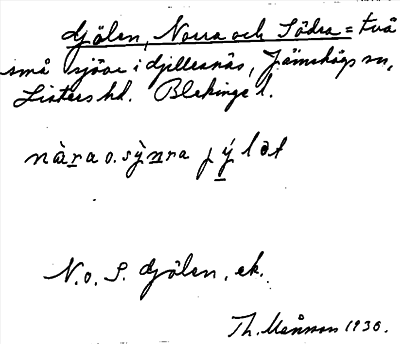 Gjölen, Norra och Södra = två
små sjöar i Gillesnäs, Jämshögs sn,
Listers hd. Blekinge l.
nàra o. sỳnra jýlət
N. o. S. Gjölen, ek.
Th. 1930.